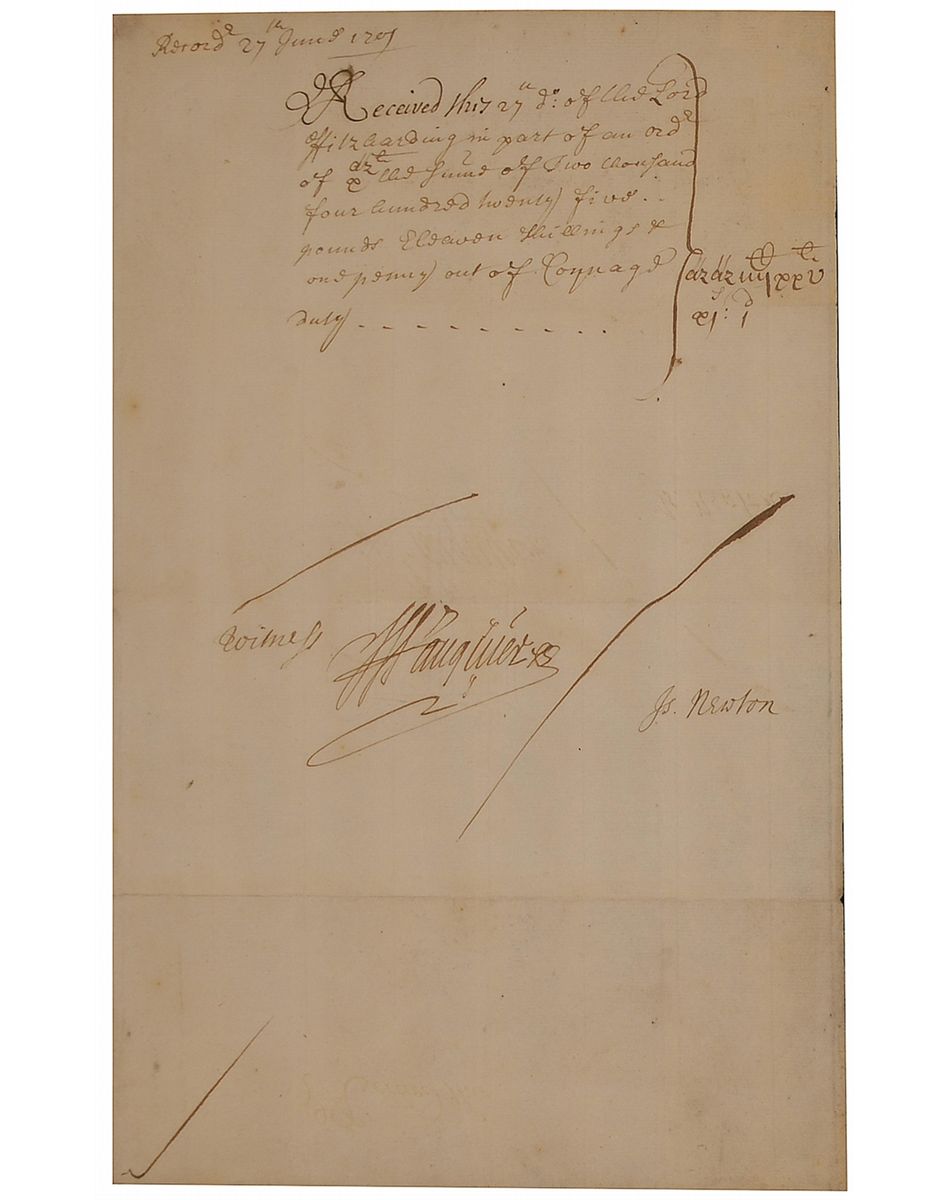 Record^d 27^th June 1701
Received this 27^th d^o: of the Lord
Fitzharding in part of an ord^r
of x^m the Sume of Two thousand
four hundred twenty five . .
pounds Eleaven shillings &
one penny out of Coynage
duty - - - - - - - - - -
xj^s: j^d
Witness
Fauquier
Is. Newton